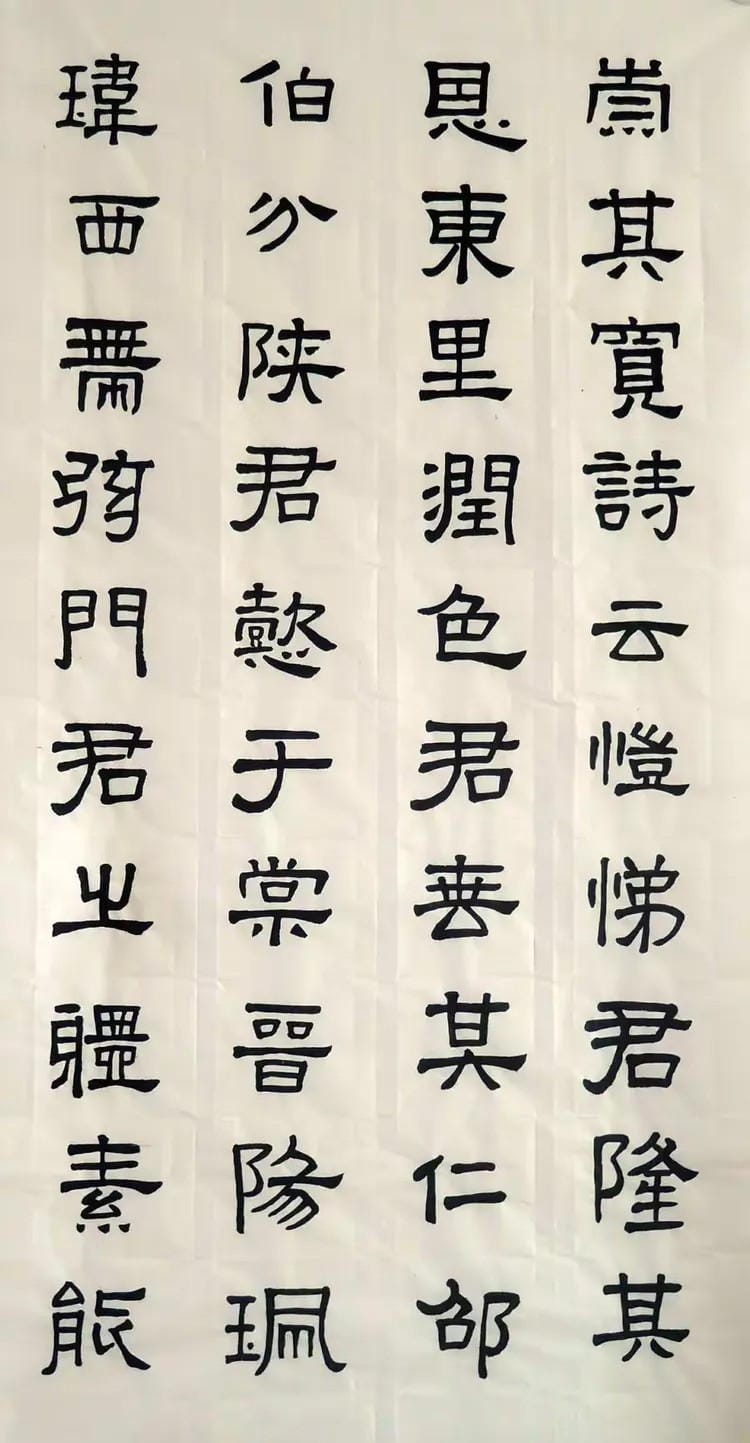 崇其寬詩云愷悌君隆其
恩東里潤色君垂其仁邵
伯分陝君懿于棠晉陽珮
瑋西帶弦門君之體素能